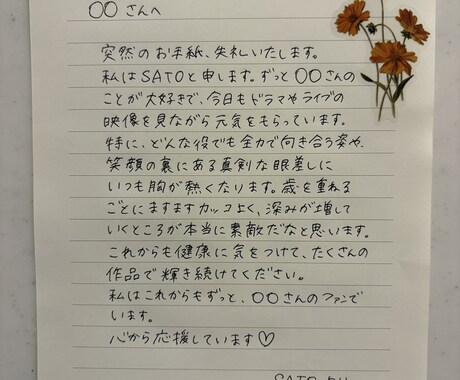 〇〇さんへ
突然のお手紙、失礼いたします。
私はSATOと申します。ずっと〇〇さんの
ことが大好きで、今日もドラマやライブの
映像を見ながら元気をもらっています。
特に、どんな役でも全力で向き合う姿や、
笑顔の裏にある真剣な眼差しに
いつも胸が熱くなります。歳を重ねる
ごとにますますカッコよく、深みが増して
いくところが本当に素敵だなと思います。
これからも健康に気をつけて、たくさんの
作品で輝き続けてください。
私はこれからもずっと、〇〇さんのファンで
います。
心から応援しています♡
SATO